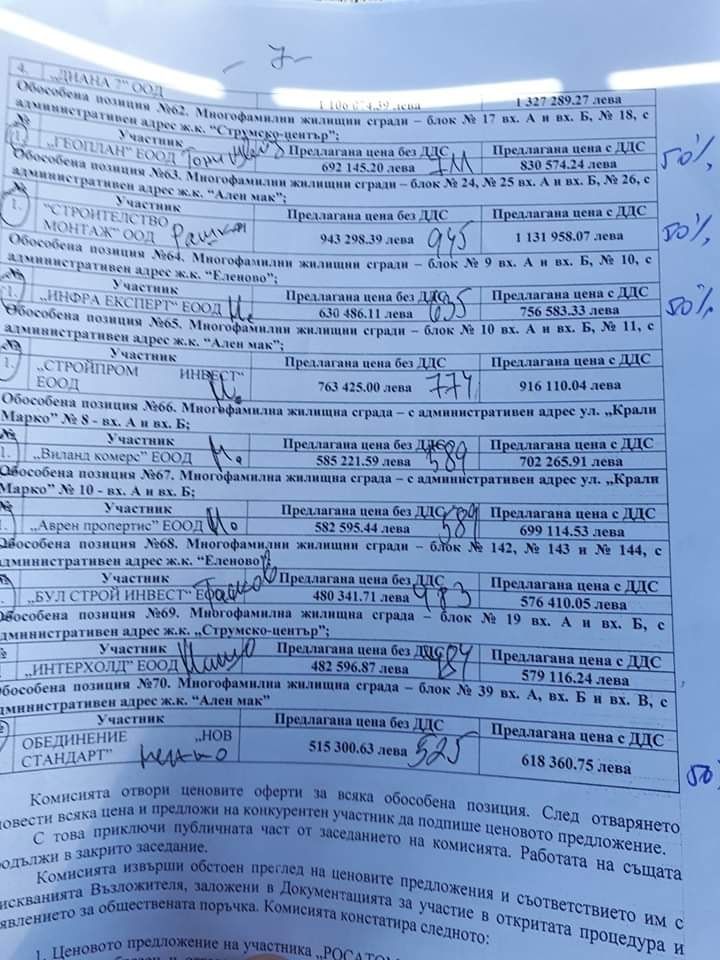 - 7 -
4. „ДИАНА 7“ ООД
1 106 074.39 лева 1 327 289.27 лева
Обособена позиция №62. Многофамилни жилищни сгради – блок № 17 вх. А и вх. Б, № 18, с
административен адрес ж.к. “Струмско-център”;
№ Участник Предлагана цена без ДДС Предлагана цена с ДДС
1. „ГЕОПЛАН“ ЕООД 692 145.20 лева 711 830 574.24 лева 50%
Обособена позиция №63. Многофамилни жилищни сгради – блок № 24, № 25 вх. А и вх. Б, № 26, с
административен адрес ж.к. “Ален мак”;
Участник Предлагана цена без ДДС Предлагана цена с ДДС
1. “СТРОИТЕЛСТВО
МОНТАЖ” ООД 943 298.39 лева 945 1 131 958.07 лева 50%
Обособена позиция №64. Многофамилни жилищни сгради – блок № 9 вх. А и вх. Б, № 10, с
административен адрес ж.к. “Еленово”;
Участник Предлагана цена без ДДС Предлагана цена с ДДС
1. „ИНФРА ЕКСПЕРТ“ ЕООД 630 486.11 лева 635 756 583.33 лева 50%
Обособена позиция №65. Многофамилни жилищни сгради – блок № 10 вх. А и вх. Б, № 11, с
административен адрес ж.к. “Ален мак”;
Участник Предлагана цена без ДДС Предлагана цена с ДДС
1. „СТРОЙПРОМ ИНВЕСТ“
ЕООД 763 425.00 лева 774 916 110.04 лева
Обособена позиция №66. Многофамилна жилищна сграда – с административен адрес ул. „Крали
Марко” № 8 - вх. А и вх. Б;
№ Участник Предлагана цена без ДДС Предлагана цена с ДДС
1. „Виланд комерс“ ЕООД 585 221.59 лева 589 702 265.91 лева
Обособена позиция №67. Многофамилна жилищна сграда – с административен адрес ул. „Крали
Марко” № 10 - вх. А и вх. Б;
№ Участник Предлагана цена без ДДС Предлагана цена с ДДС
. „Аврен пропертис“ ЕООД 582 595.44 лева 589 699 114.53 лева
Обособена позиция №68. Многофамилни жилищни сгради – блок № 142, № 143 и № 144, с
административен адрес ж.к. “Еленово”
Участник Предлагана цена без ДДС Предлагана цена с ДДС
. „БУЛ СТРОЙ ИНВЕСТ“ 480 341.71 лева 983 576 410.05 лева
Обособена позиция №69. Многофамилна жилищна сграда – блок № 19 вх. А и вх. Б, с
дминистративен адрес ж.к. „Струмско-център”;
№ Участник Предлагана цена без ДДС Предлагана цена с ДДС
„ИНТЕРХОЛД” ЕООД 482 596.87 лева 579 116.24 лева
Обособена позиция №70. Многофамилна жилищна сграда – блок № 39 вх. А, вх. Б и вх. В, с
дминистративен адрес ж.к. “Ален мак”
Участник Предлагана цена без ДДС Предлагана цена с ДДС
ОБЕДИНЕНИЕ „НОВ
СТАНДАРТ” 515 300.63 лева 525 618 360.75 лева 50
Комисията отвори ценовите оферти за всяка обособена позиция. След отварянето
повести всяка цена и предложи на конкурентен участник да подпише ценовото предложение.
С това приключи публичната част от заседанието на комисията. Работата на същата
родължи в закрито заседание.
Комисията извърши обстоен преглед на ценовите предложения и съответствието им с
искванията Възложителя, заложени в Документацията за участие в откритата процедура и
явлението за обществената поръчка. Комисията констатира следното:
1. Ценовото предложение на участника „РОСАТОМ